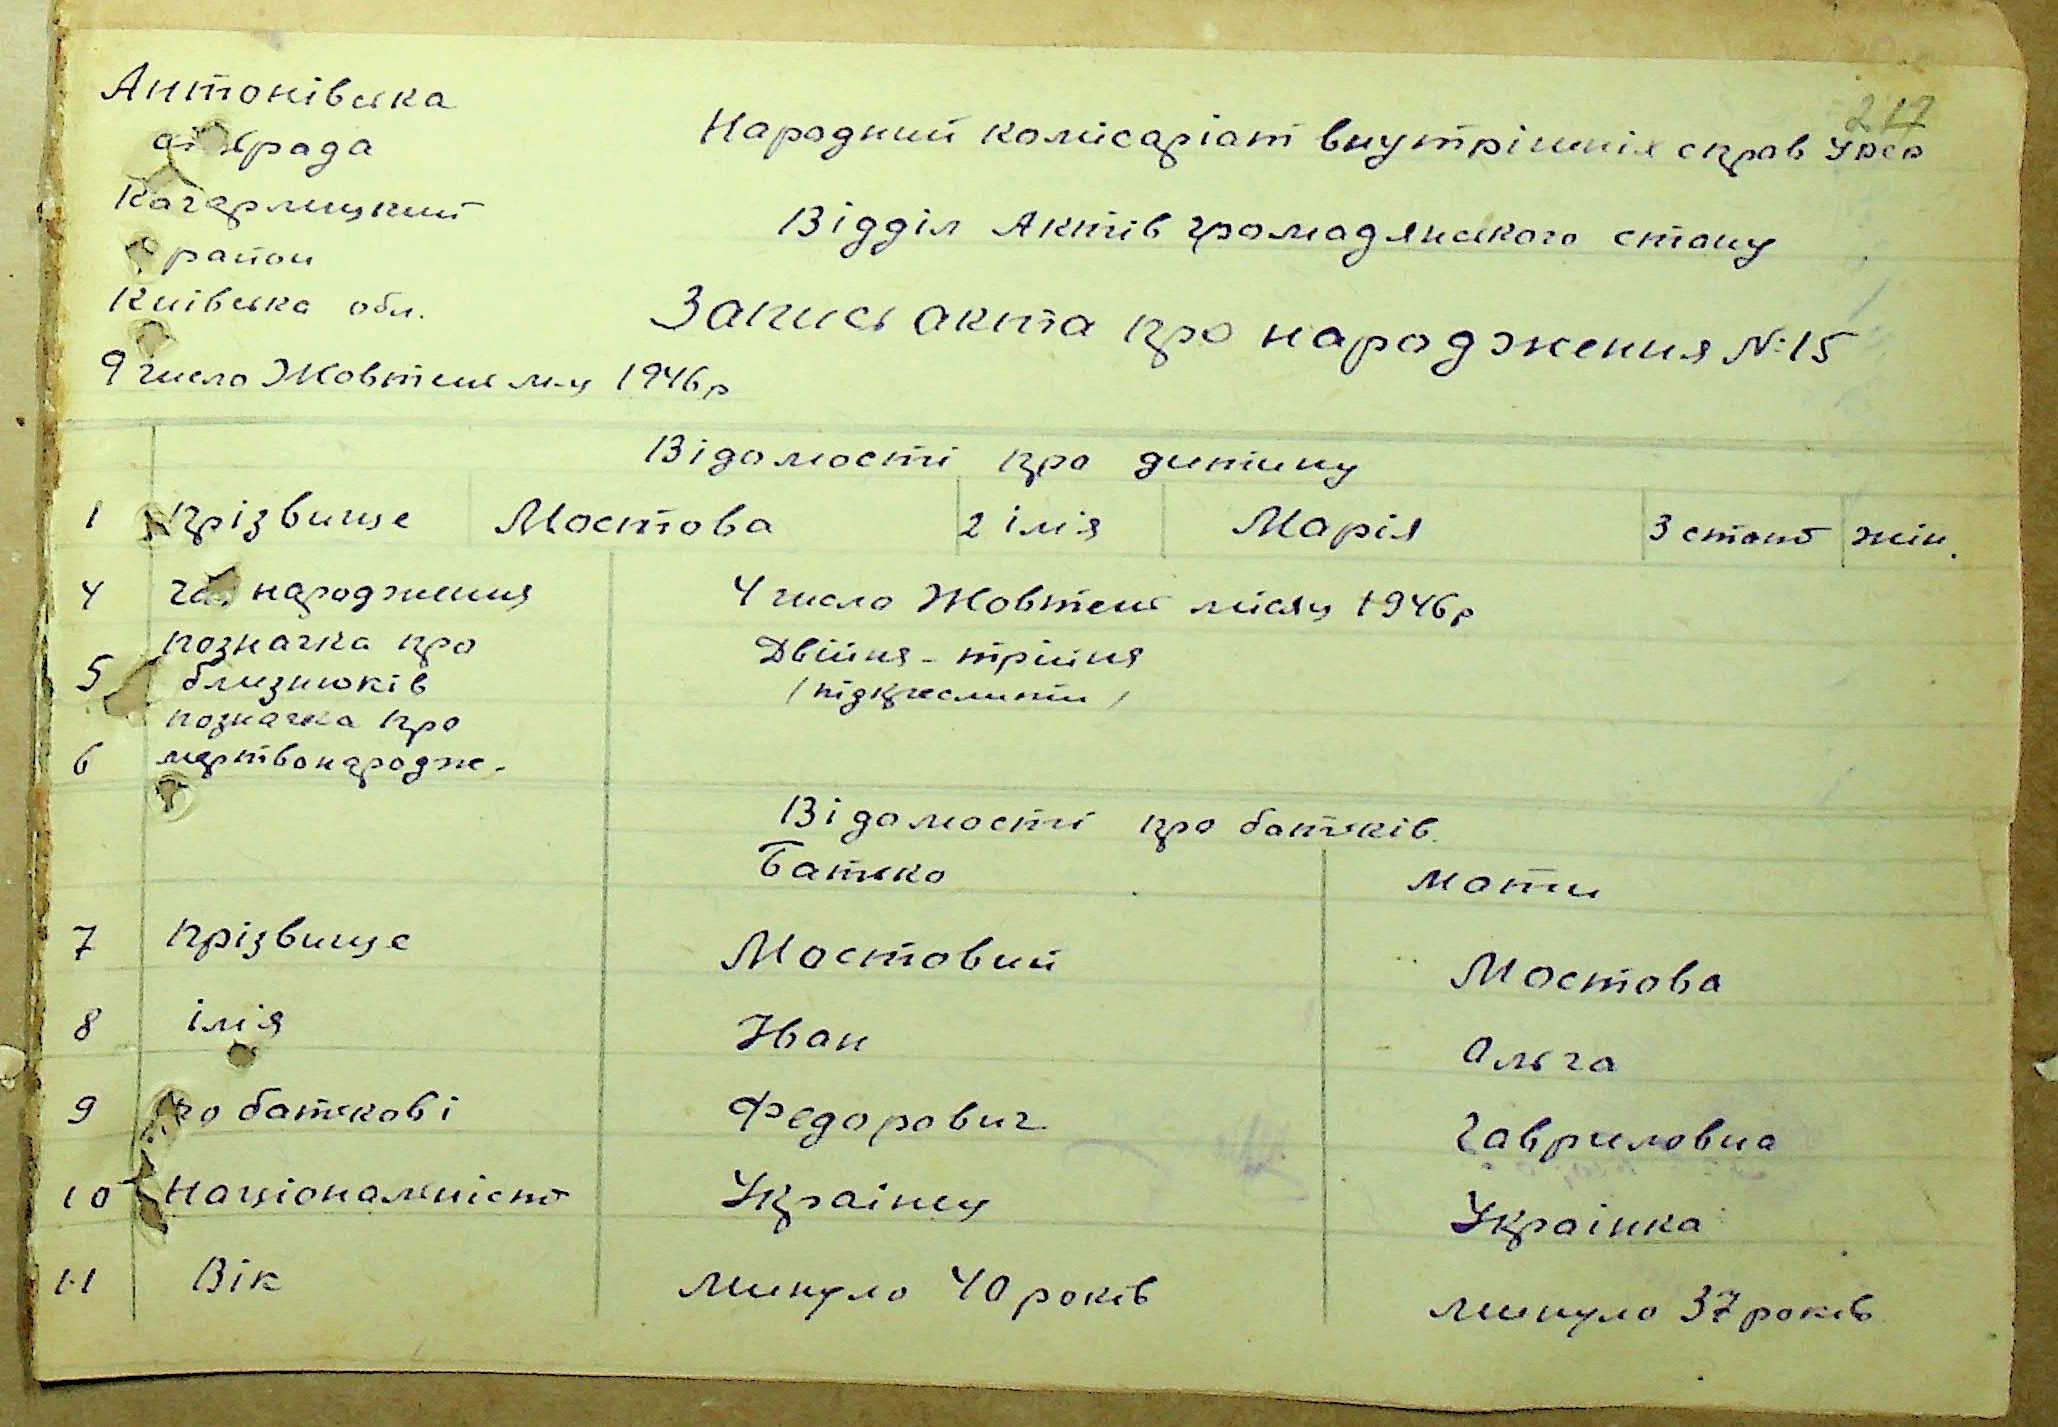 217
Антонівська
сільрада
Кагарлицкий
район
Київська обл.
9 число Жовтень м-ц 1946р
Народний комісаріат внутрішніх справ УРСР
Відділ Актів громадянського стану
Запись акта про народження №15
Відомості про дитину
1 прізвище Мостова 2 імія Марія 3 стать жін.
4 час народження 4 число Жовтень місяц 1946р
5 позначка про близнюків Двійня - трійня
/ підкреслити /
6 позначка про мертвонародж.
Відомості про батьків.
Батько мати
7 прізвище Мостовий Мостова
8 імія Іван Ольга
9 по батькові Федорович Гавриловна
10 Національність Українец Українка
11 Вік минуло 40 років минуло 37 років